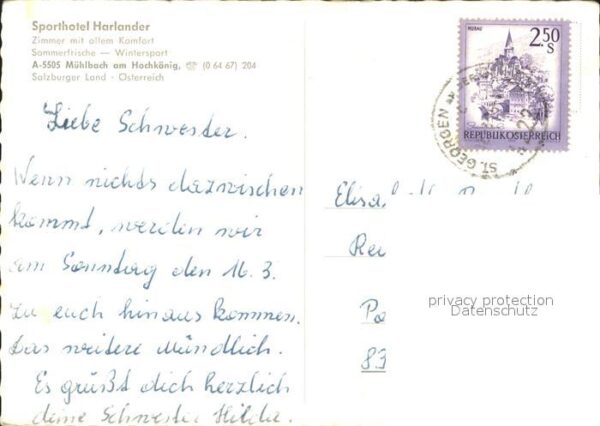 Sporthotel Harlander
Zimmer mit allem Komfort
Sommerfrische — Wintersport
A-5505 Mühlbach am Hochkönig, ☎ (0 64 67) 204
Salzburger Land · Österreich
Liebe Schwester.
Wenn nichts dazwischen
kommt, werden wir
am Sonntag den 16.3.
zu euch hinaus kommen.
Das weitere mündlich.
Es grüßt dich herzlich
deine Schwester Hilda.
MURAU
2.50
S
REPUBLIK ÖSTERREICH
ST. GEORGEN
83
privacy protection
Datenschutz